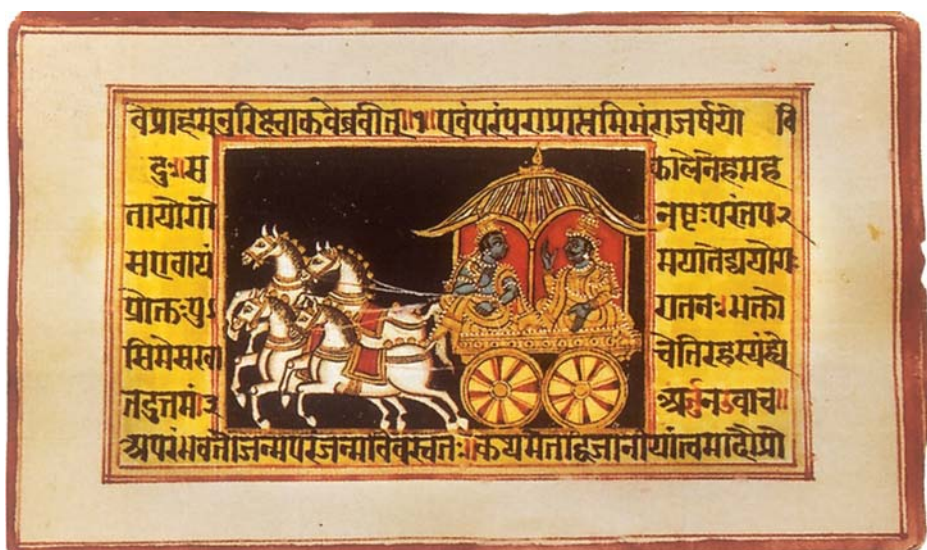 वेप्राहमनुरिक्ष्वाकवेब्रवीत्॥१॥एवंपरंपराप्राप्तमिमंराजर्षयो वि
दुः॥स कालेनेहमह
तायोगो नष्टःपरंतप२
सएवायं मयातेद्ययोगः
प्रोक्तःपुऽ रातनः॥भक्तो
सिमेसखा चेतिरहस्यंह्ये
तदुत्तमं३ अर्जुनउवाच॥
अपरंभवतोजन्मपरंजन्मविवस्वतः॥कथमेतद्विजानीयांत्वमादौप्रो